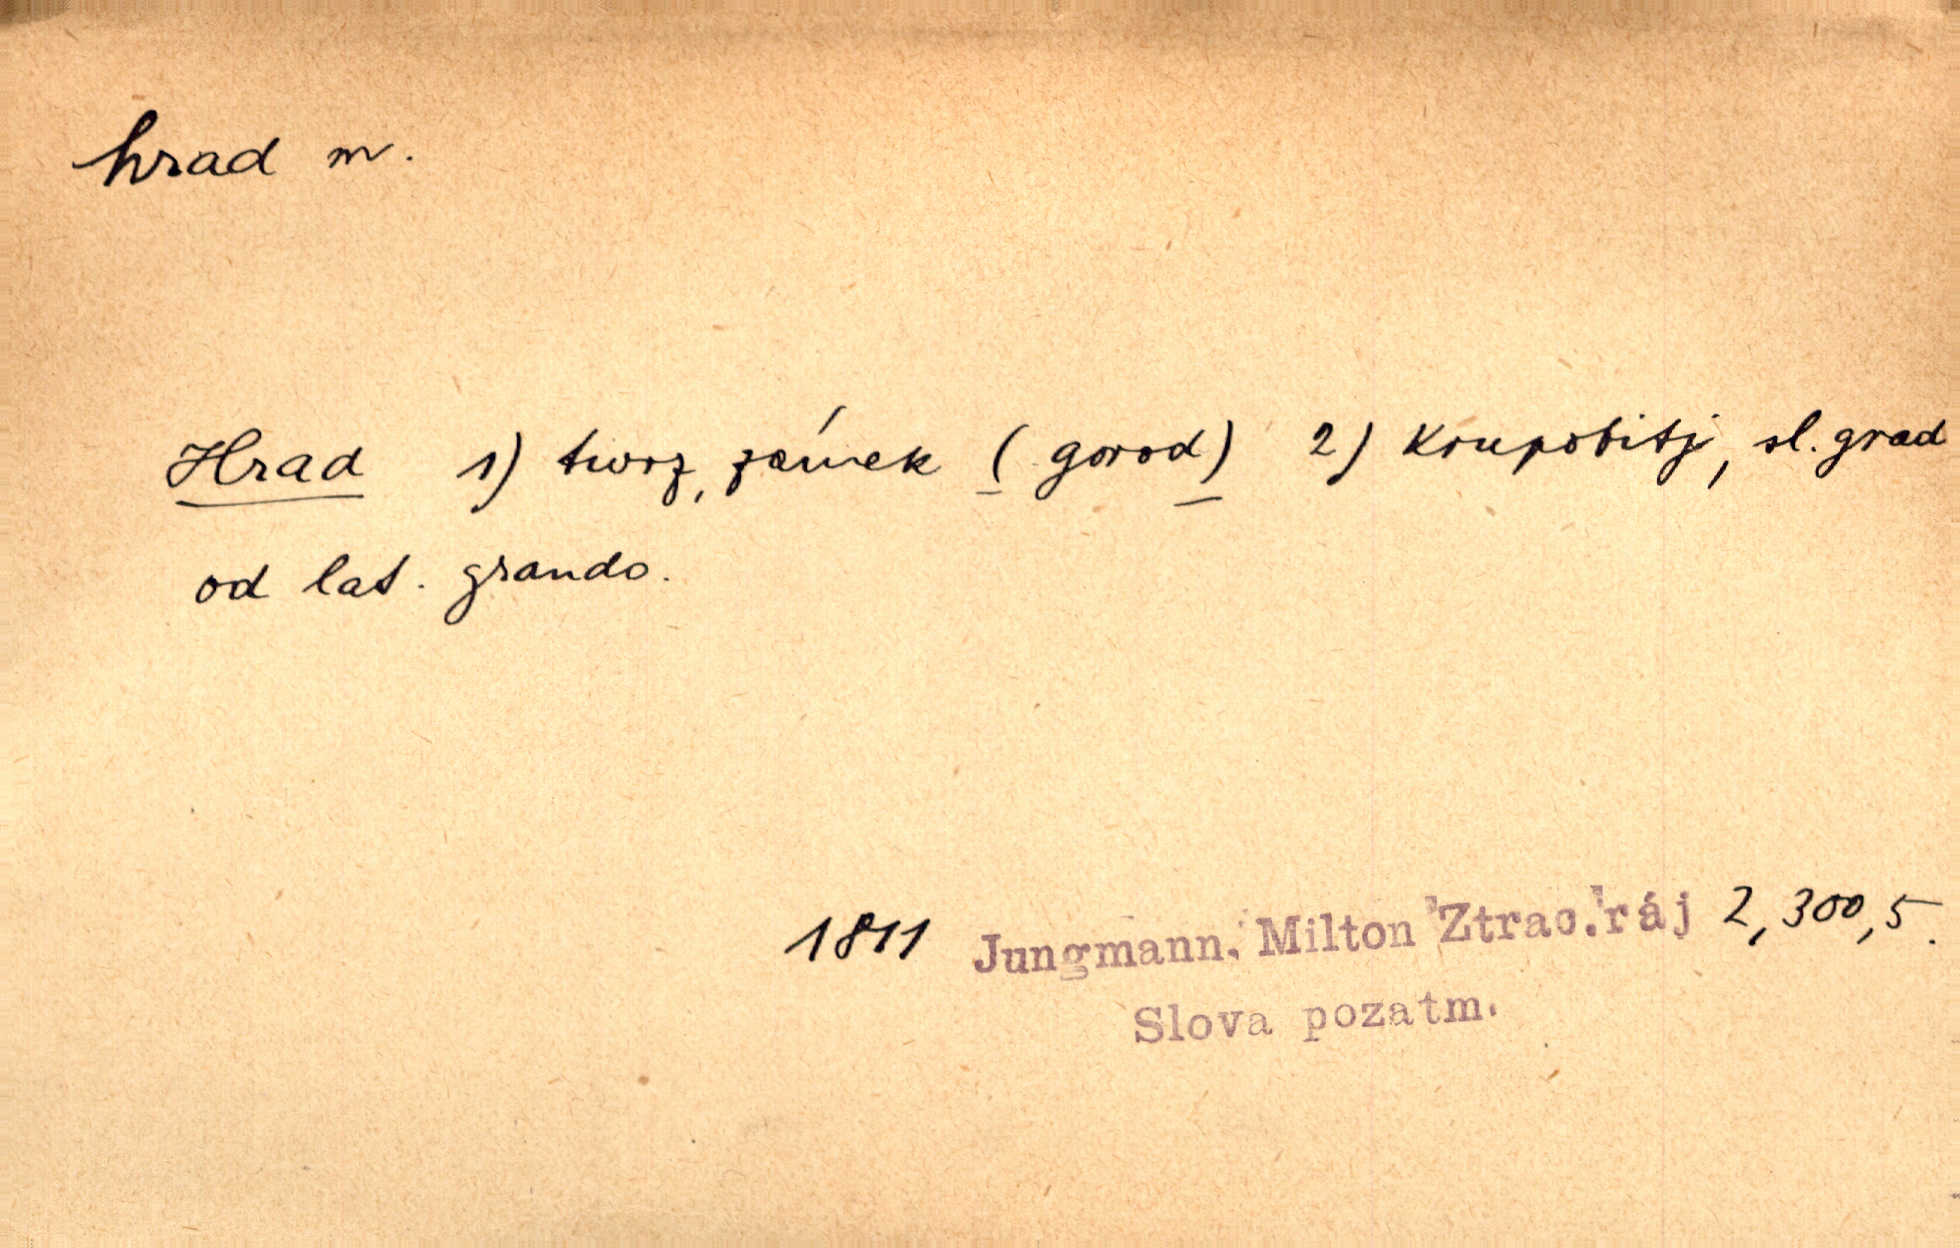 hrad m.
Hrad 1) tworz, zámek (gorod) 2) krupobitj, sl. grad
od lat. grando.
1811 Jungmann, Milton Ztrac. ráj 2, 300, 5.
Slova pozatm.